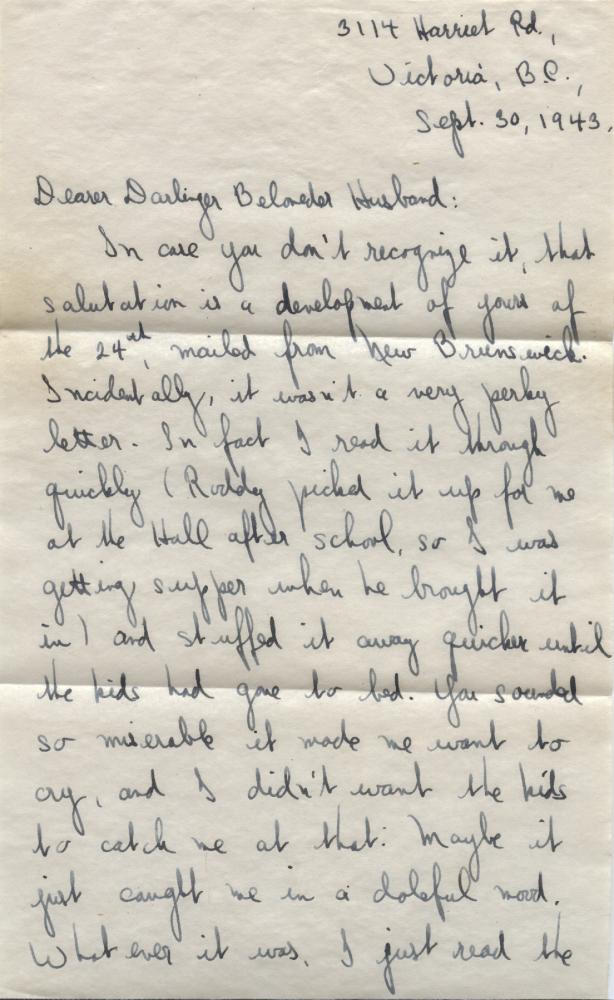 3114 Harriet Rd.,
Victoria, B.C.,
Sept. 30, 1943.
Dearer Darlinger Beloveder Husband:
In case you don't recognize it, that
salutation is a development of yours of
the 24th, mailed from New Brunswick.
Incidentally, it wasn't a very perky
letter. In fact I read it through
quickly (Roddy picked it up for me
at the Hall after school, so I was
getting supper when he brought it
in) and stuffed it away quicker until
the kids had gone to bed. You sounded
so miserable it made me want to
cry, and I didn't want the kids
to catch me at that. Maybe it
just caught me in a doleful mood.
Whatever it was, I just read the